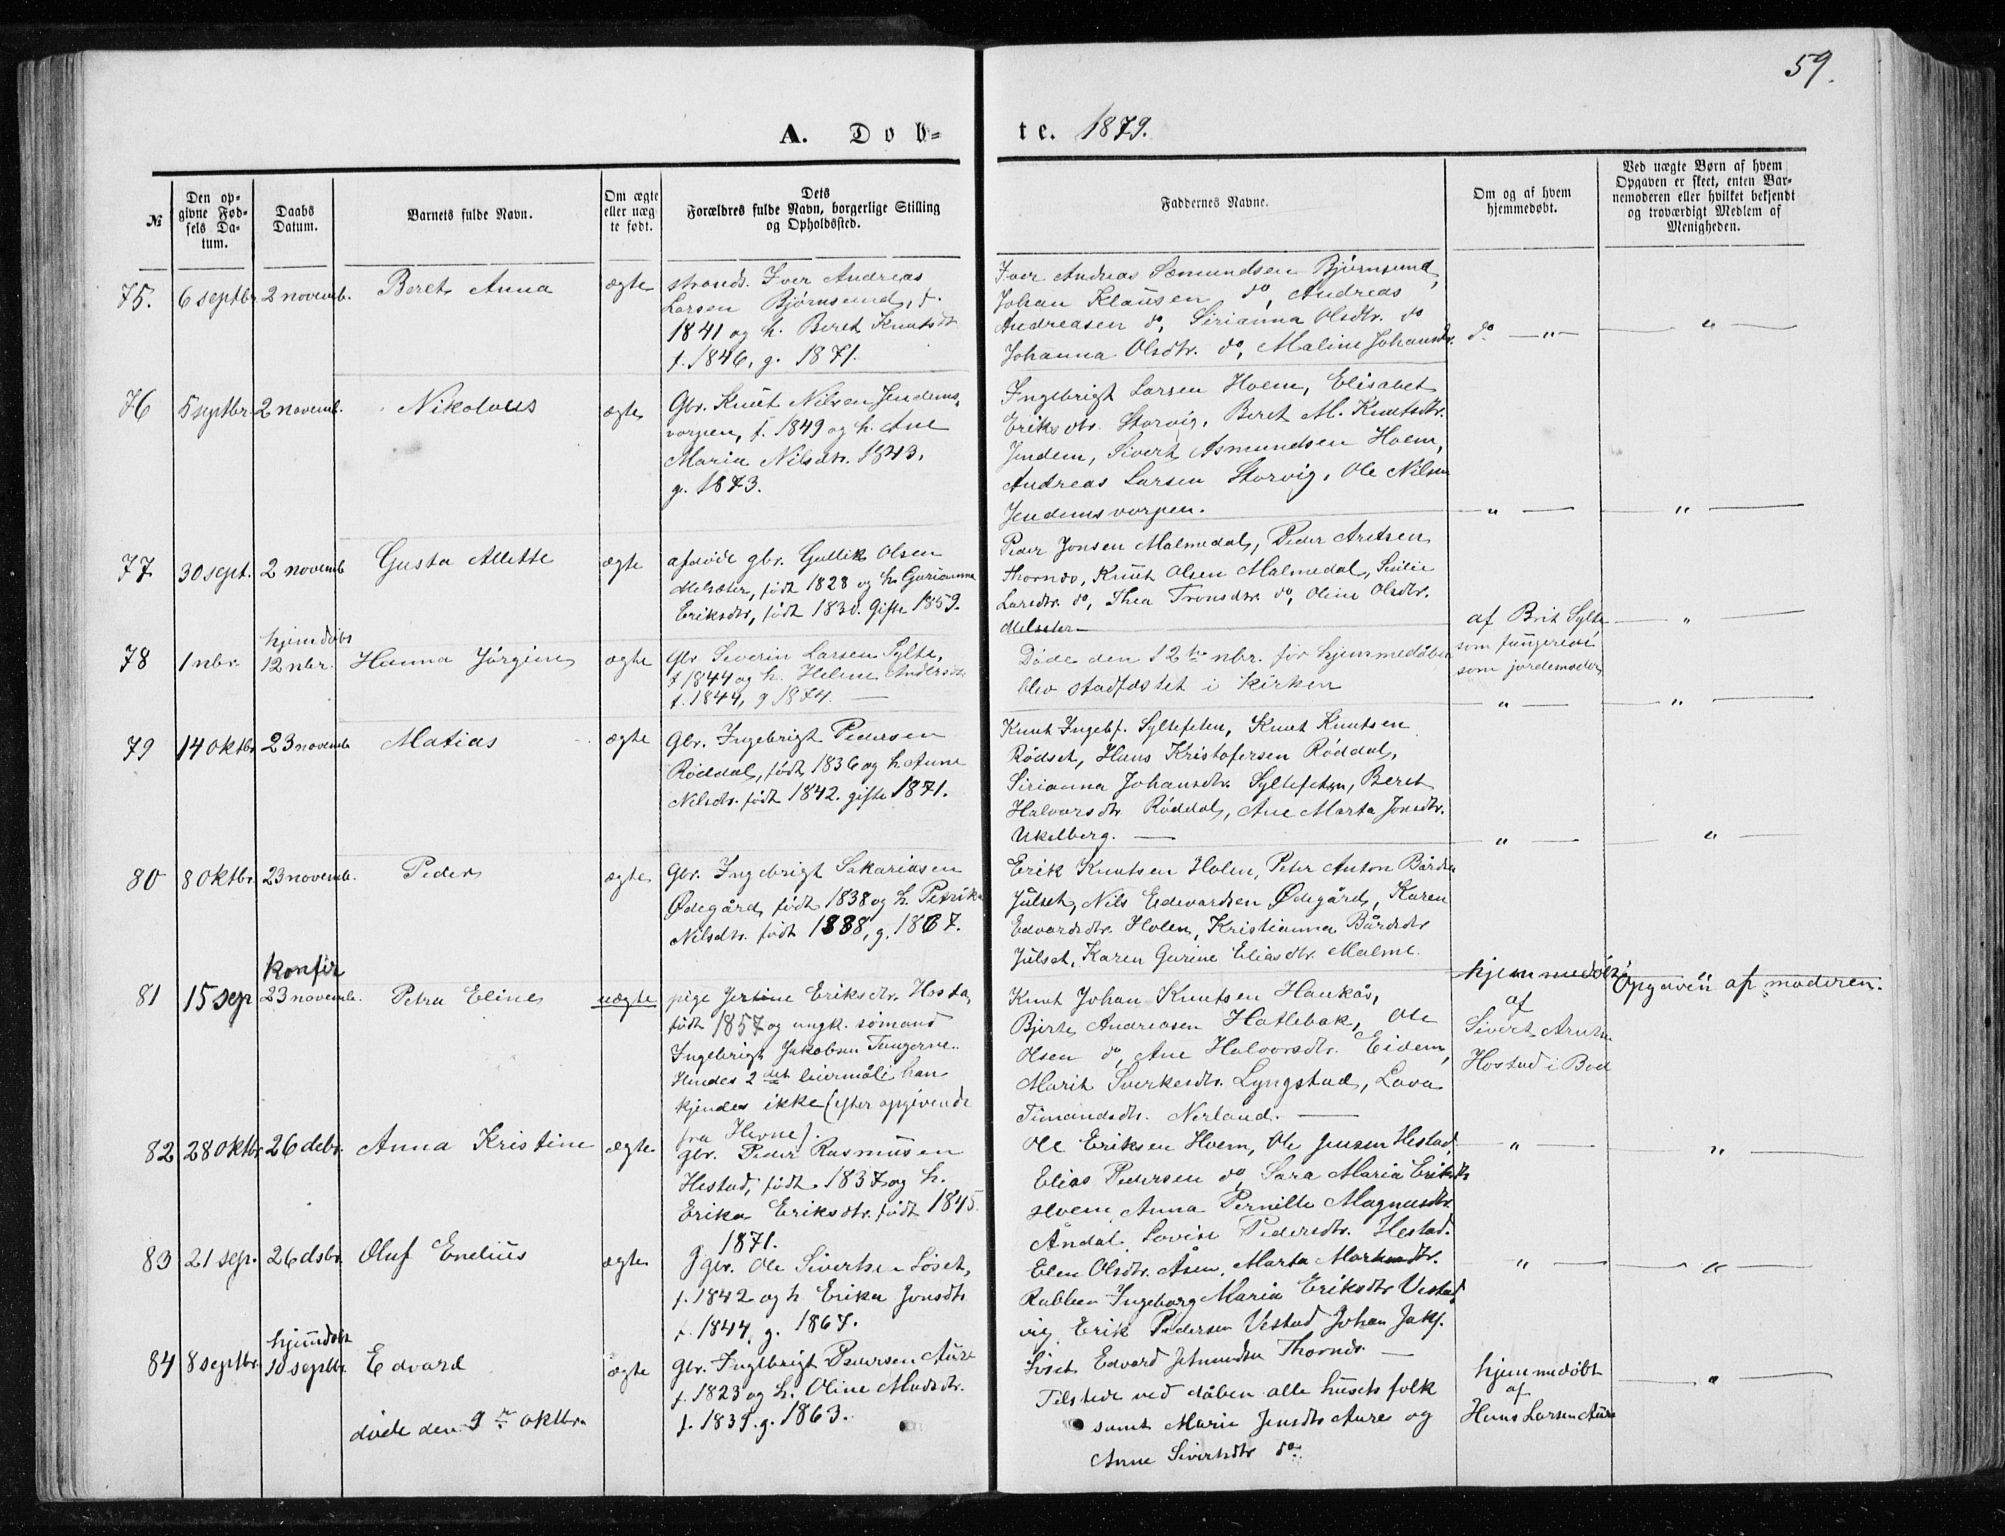 59.
A. Dob-te. 1879.
№
Den opgivne Fødsels Datum.
Daabs Datum.
Barnets fulde Navn.
Om ægte eller uægte født.
Dets Forældres fulde Navn, borgerlige Stilling og Opholdssted.
Faddernes Navne.
Om og af hvem hjemmedøbt.
Ved uægte Børn af hvem Opgaven er skeet, enten Barnemoderen eller hvilket bekjendt og troværdigt Medlem af Menigheden.
75. 6 septbr. 2 novemb. Beret Anna ægte
strands. Iver Andreas
Larsen Bjørnsund, f.
1841 og h. Beret Knutsdt
f. 1846, g. 1871.
Iver Andreas Sæmundsen Bjørnsund,
Johan Klausen do, Andreas
Andreasen do, Sirianna Olsdtr. do
Johanna Olsdtr. do, Maline Johansdtr.
do — " — — " —
76 5 septbr. 2 novemb. Nikolaus ægte
Gbr. Knut Nilsen Jendems-
vorpen, f. 1849 og h. Ane
Maria Nilsdtr. 1843,
g. 1873.
Ingebrigt Larsen Hoem, Elisabet
Eriksdtr. Storvig, Beret M. Knutsdtr.
Jendem, Sivert Asmundsen Hoem,
Andreas Larsen Storvig, Ole Nilsen
Jendemsvorpen.
— " — — " —
77 30 sept. 2 novemb Gusta Alette ægte
afdøde gbr. Gullik Olsen
Melsæter, født 1828 og h. Gurianna
Eriksdtr, født 1830. Gifte 1859.
Peder Jonsen Malmedal, Peder Aretsen
Thornæs, Knut Olsen Malmedal,
Larsdtr. do, Thea Tronsdtr. do, Oline Olsdtr.
Melseter
— " —
78 1 nbr. hjemdøbt
12 nbr. Hanna Jørgine ægte
Gbr Severin Larsen Sylte,
f 1844 og h. Helene Andersdtr
f. 1844, g 1874. —
Døde den 12te nbr. før hjemmedåben
blev stadfæstet i kirken
af Brit Sylte
som fungerede
som jordemoder
— " — — " —
79 14 oktbr 23 novemb Matias ægte
Gbr. Ingebrigt Pedersen
Røddal, født 1836 og h. Anne
Nilsdtr. født 1842. gifte 1871.
Knut Ingebr. Syltefeten, Knut Knutsen
Rødset, Hans Kristofersen Røddal,
Sirianna Johansdtr. Syltefeten, Beret
Halvorsdtr Røddal, Ane Marta Jonsdtr.
Ukelberg. —
— " — — " —
80 8 oktbr. 23 novemb. Peder ægte
Gbr. Ingebrigt Sakariasen
Ødegård, født 1838 og h. Petrika
Nilsdtr. født 1838, g. 1867.
Erik Knutsen Holen, Peter Anton Bårdsen
Julset, Nils Edevardsen Ødegård, Karen
Edvardsdtr. Holen, Kristianna Bårdsdtr
Julset, Karen Gurine Eliasdtr. Malme.
81 15 sep konfir
23 novemb. Petra Eline uægte
pige Jertine Eriksdtr. Hosta,
født 1857 og ungk. sømand
Ingebrigt Jakobsen Tangerne.
Hendes 2det leiermål; han
kjendes ikke (efter opgivende
fra Hevne).
Knut Johan Knutsen Haukås,
Bjerte Andreasen Hatlebak, Ole
Olsen do, Ane Halvorsdtr. Eidem,
Marit Sverkesdtr. Lyngstad, Lava
Timandsdtr. Nerland. —
hjemmedøbt
af
Sivert Arntsen
Hostad i Bod
Opgaven af moderen.
82 28 oktbr. 26 debr. Anna Kristine ægte
gbr. Peder Rasmusen
Hestad, født 1837 og h.
Erika Eriksdtr. født 1845.
g 1871.
Ole Eriksen Hoem, Ole Jensen Hestad,
Elias Pedersen do, Sara Maria Eriksdtr
Hoem, Anna Pernille Magnusdtr.
Åndal, Lovise Pedersdtr. Hestad.
— " — — " —
83 21 sep. 26 dsbr. Oluf Enelius ægte
gbr. Ole Sivertsen Løset,
f. 1842 og h. Erika Jonsdtr
f. 1844, g. 1867.
Elen Olsdtr. Åsen, Marta Martensdtr.
Rabben Ingeborg Maria Eriksdtr Vestad
vig, Erik Pedersen Vestad Johan Jakf.
Løset Edvard Asmundsen Thornæs. —
— " — — " —
84 8 septbr. hjemdøbt
10 septbr. Edvard ægte
døde den 9de oktbr.
Gbr. Ingebrigt Pedersen Aure
f. 1823 og h. Oline Madsdtr.
f. 1839. g. 1863.
Tilstede ved dåben alle husets folk
samt Marie Jensdtr Aure og
Anne Sivertsdtr do.
hjemmedøbt
af
Hans Larsen Aure
— " —